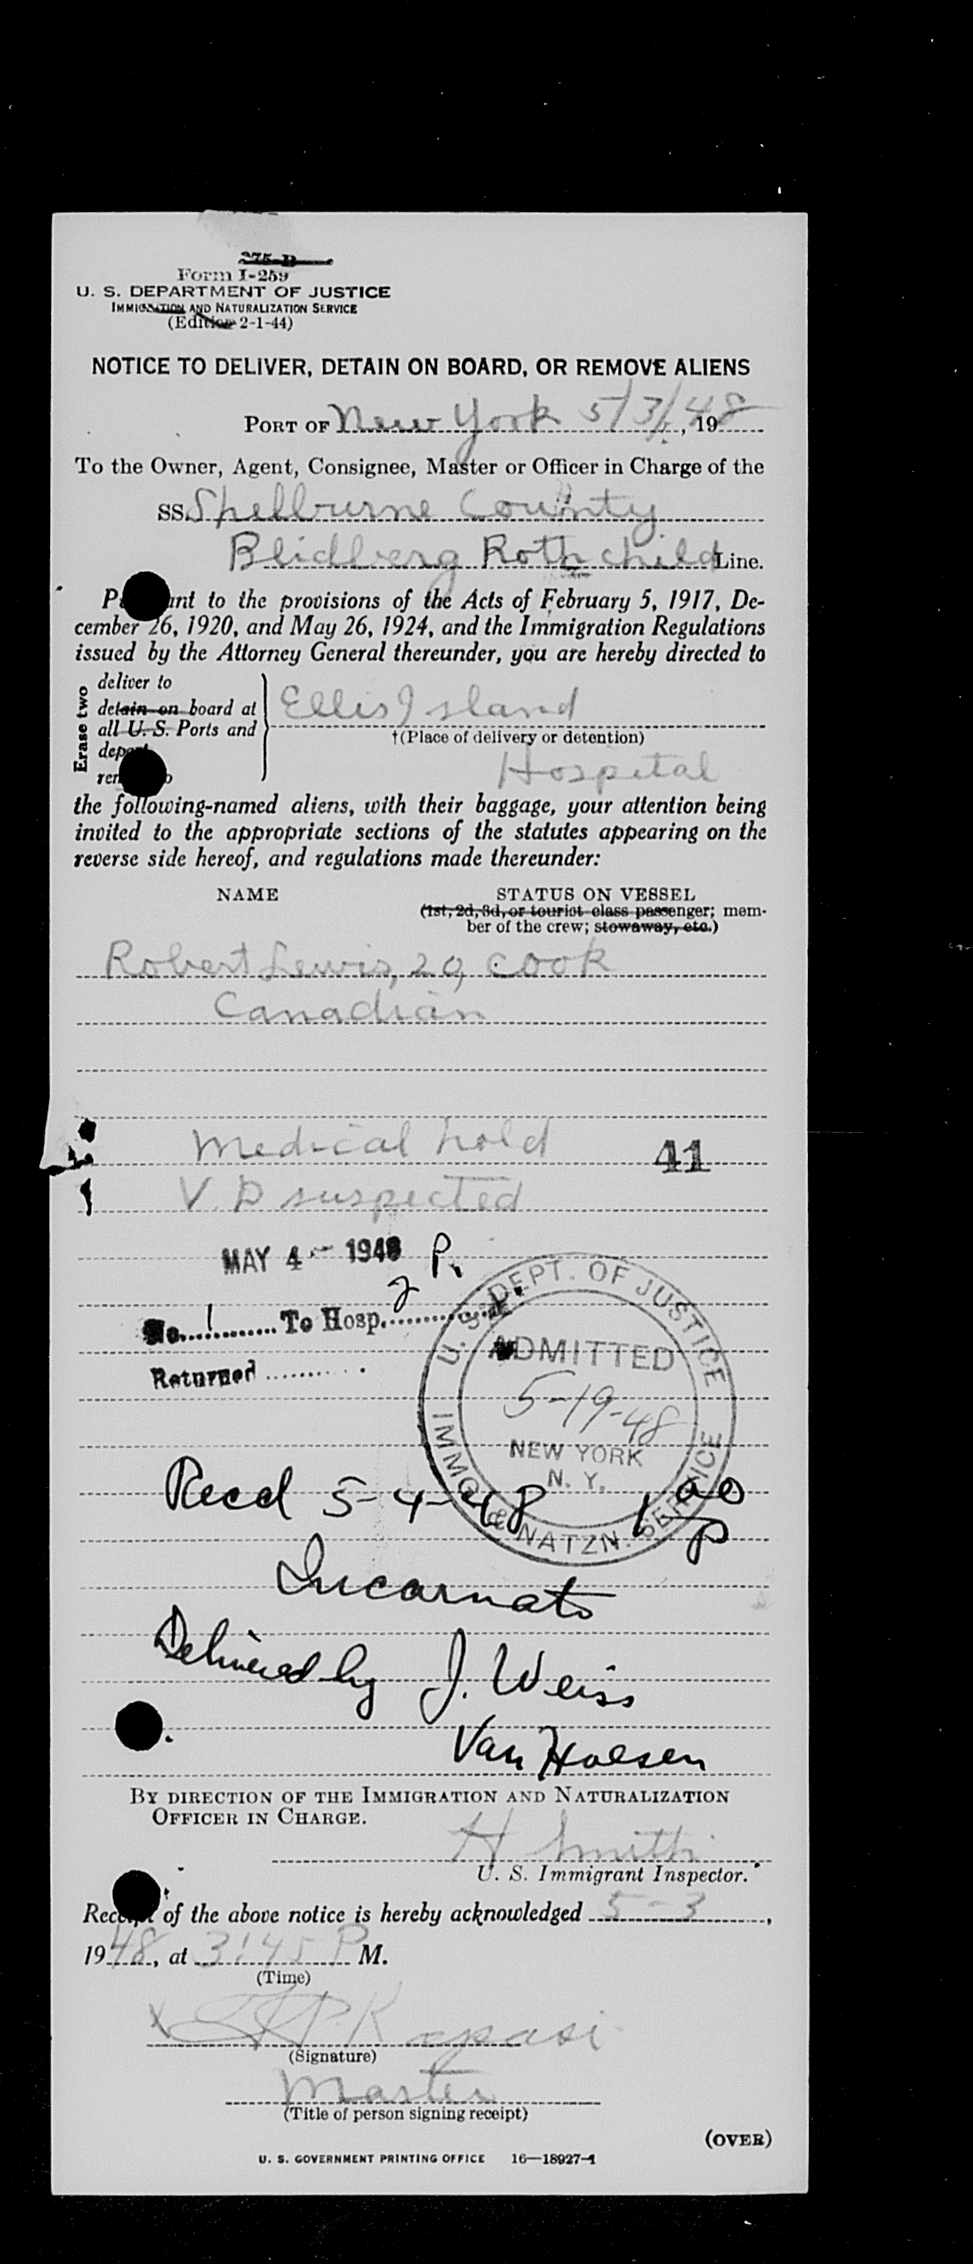 275-B
Form I-259
U. S. DEPARTMENT OF JUSTICE
IMMIGRATION AND NATURALIZATION SERVICE
(Edition 2-1-44)
NOTICE TO DELIVER, DETAIN ON BOARD, OR REMOVE ALIENS
PORT OF New York 5/3/48, 1948
To the Owner, Agent, Consignee, Master or Officer in Charge of the
SS. Shelburne County
Blidberg Rothchild Line.
Pursuant to the provisions of the Acts of February 5, 1917, De-
cember 26, 1920, and May 26, 1924, and the Immigration Regulations
issued by the Attorney General thereunder, you are hereby directed to
Erase two
deliver to
detain on board at
all U. S. Ports and
Ellis Island
†(Place of delivery or detention)
Hospital
the following-named aliens, with their baggage, your attention being
invited to the appropriate sections of the statutes appearing on the
reverse side hereof, and regulations made thereunder:
NAME STATUS ON VESSEL
(1st, 2d, 3d, or tourist class passenger; mem-
ber of the crew; stowaway, etc.)
Robert Lewis, 29, cook
Canadian
Medical hold 41
V. D suspected
MAY 4 - 1948 P.
No. 1 To Hosp. 2
Returned
U. S. DEPT. OF JUSTICE
ADMITTED
5-19-48
NEW YORK
N. Y.
IMMG. & NATZN. SERVICE
Recd 5-4-48 1 00 P
Incarnato
Delivered by J. Weiss
Van Hoesen
BY DIRECTION OF THE IMMIGRATION AND NATURALIZATION
OFFICER IN CHARGE.
H Smith
U. S. Immigrant Inspector.
Receipt of the above notice is hereby acknowledged 5-3,
1948, at 3:45 P M.
(Time)
(Signature)
Master
(Title of person signing receipt)
(OVER)
U. S. GOVERNMENT PRINTING OFFICE 16—18927-1